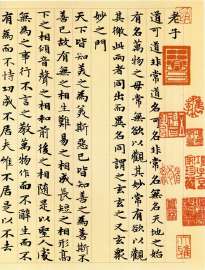 老子
道可道非常道名可名非常名無名天地之始
有名萬物之母常無欲以觀其妙常有欲以觀
其徼此兩者同出而異名同謂之玄玄之又玄衆
妙之門
天下皆知美之為美斯惡已皆知善之為善斯不
善已故有無之相生難易之相成長短之相形高
下之相傾音聲之相和前後之相隨是以聖人處
無為之事行不言之教萬物作而不辭生而不
有為而不恃功成不居夫唯不居是以不去